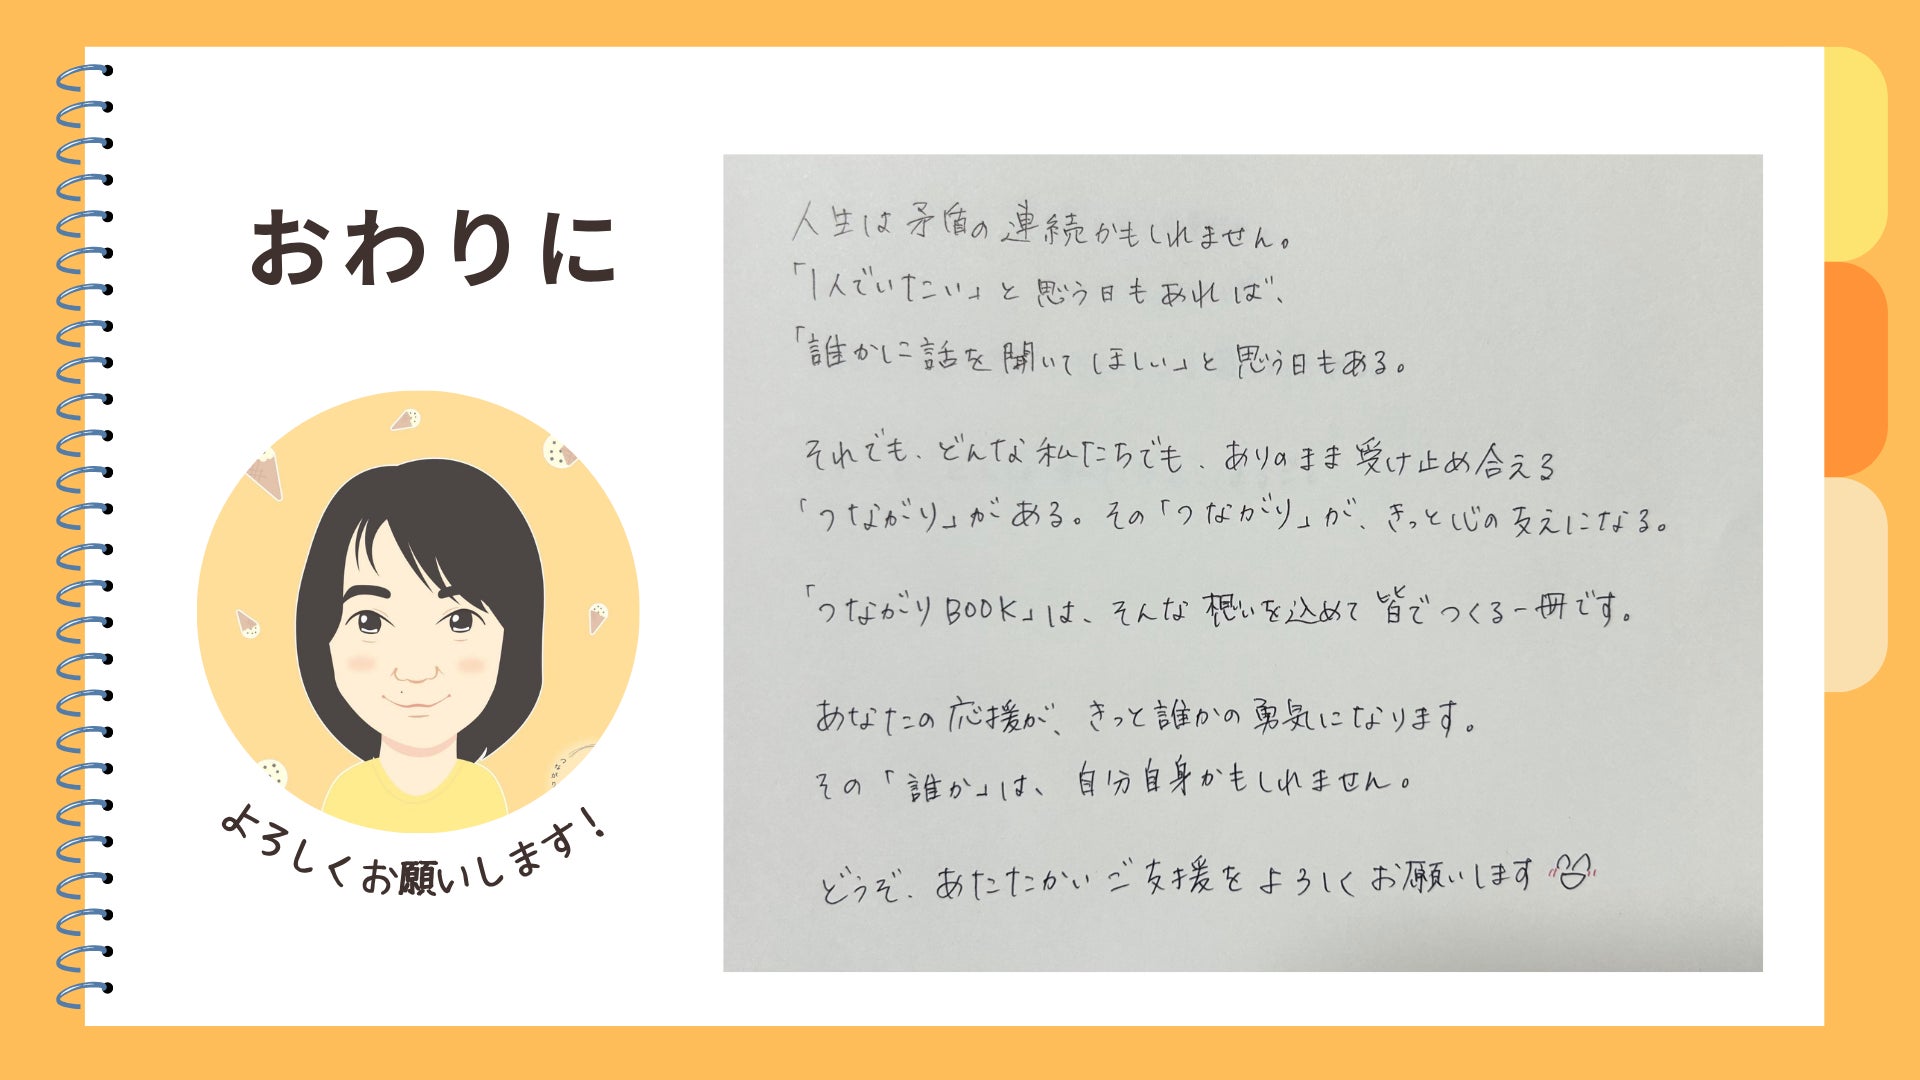 おわりに
よろしくお願いします!
人生は矛盾の連続かもしれません。
「1人でいたい」と思う日もあれば、
「誰かに話を聞いてほしい」と思う日もある。
それでも、どんな私たちでも、ありのまま受け止め合える
「つながり」がある。その「つながり」が、きっと心の支えになる。
「つながりBOOK」は、そんな想いを込めて皆でつくる一冊です。
あなたの応援が、きっと誰かの勇気になります。
その「誰か」は、自分自身かもしれません。
どうぞ、あたたかいご支援をよろしくお願いします